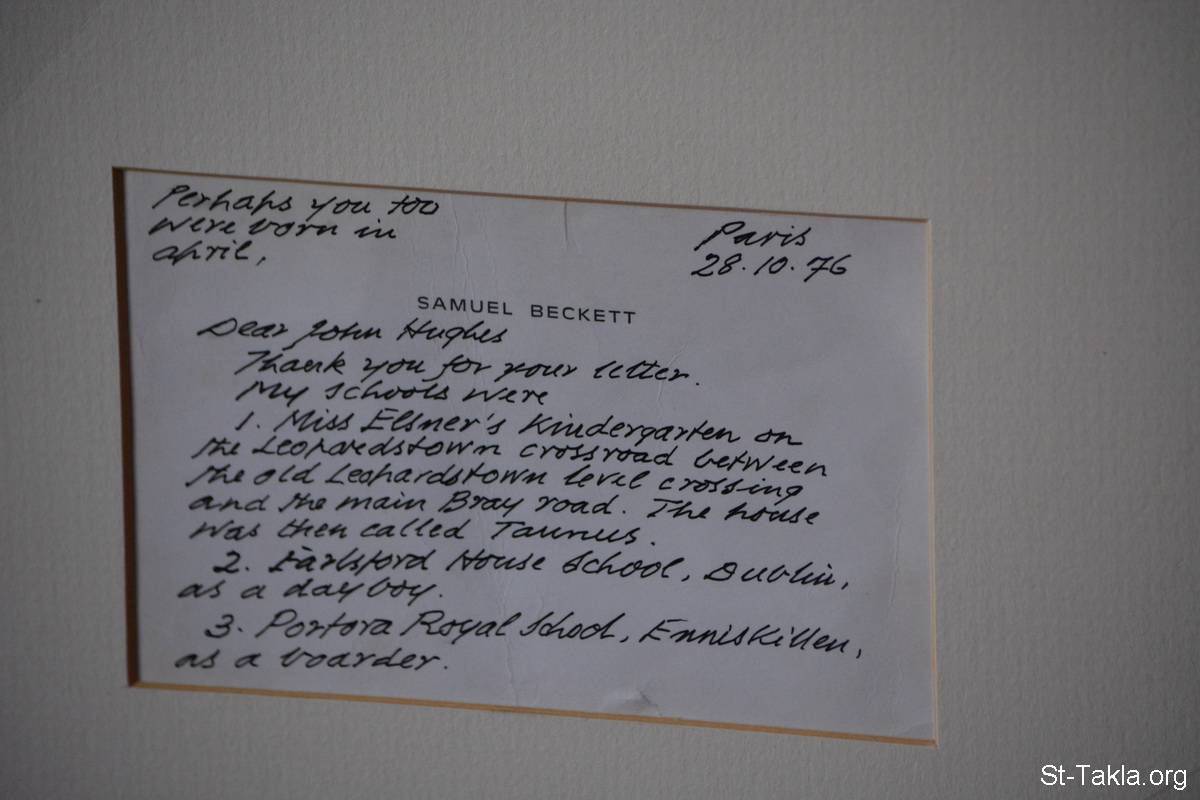 Perhaps you too
were born in
april,
Paris
28.10.76
SAMUEL BECKETT
Dear John Hughes
Thank you for your letter.
My schools were
1. Miss Elsner's Kindergarten on
the Leopardstown crossroad between
the old Leopardstown level crossing
and the main Bray road. The house
was then called Taunus.
2. Earlsford House School, Dublin,
as a dayboy.
3. Portora Royal School, Enniskillen,
as a boarder.
St-Takla.org